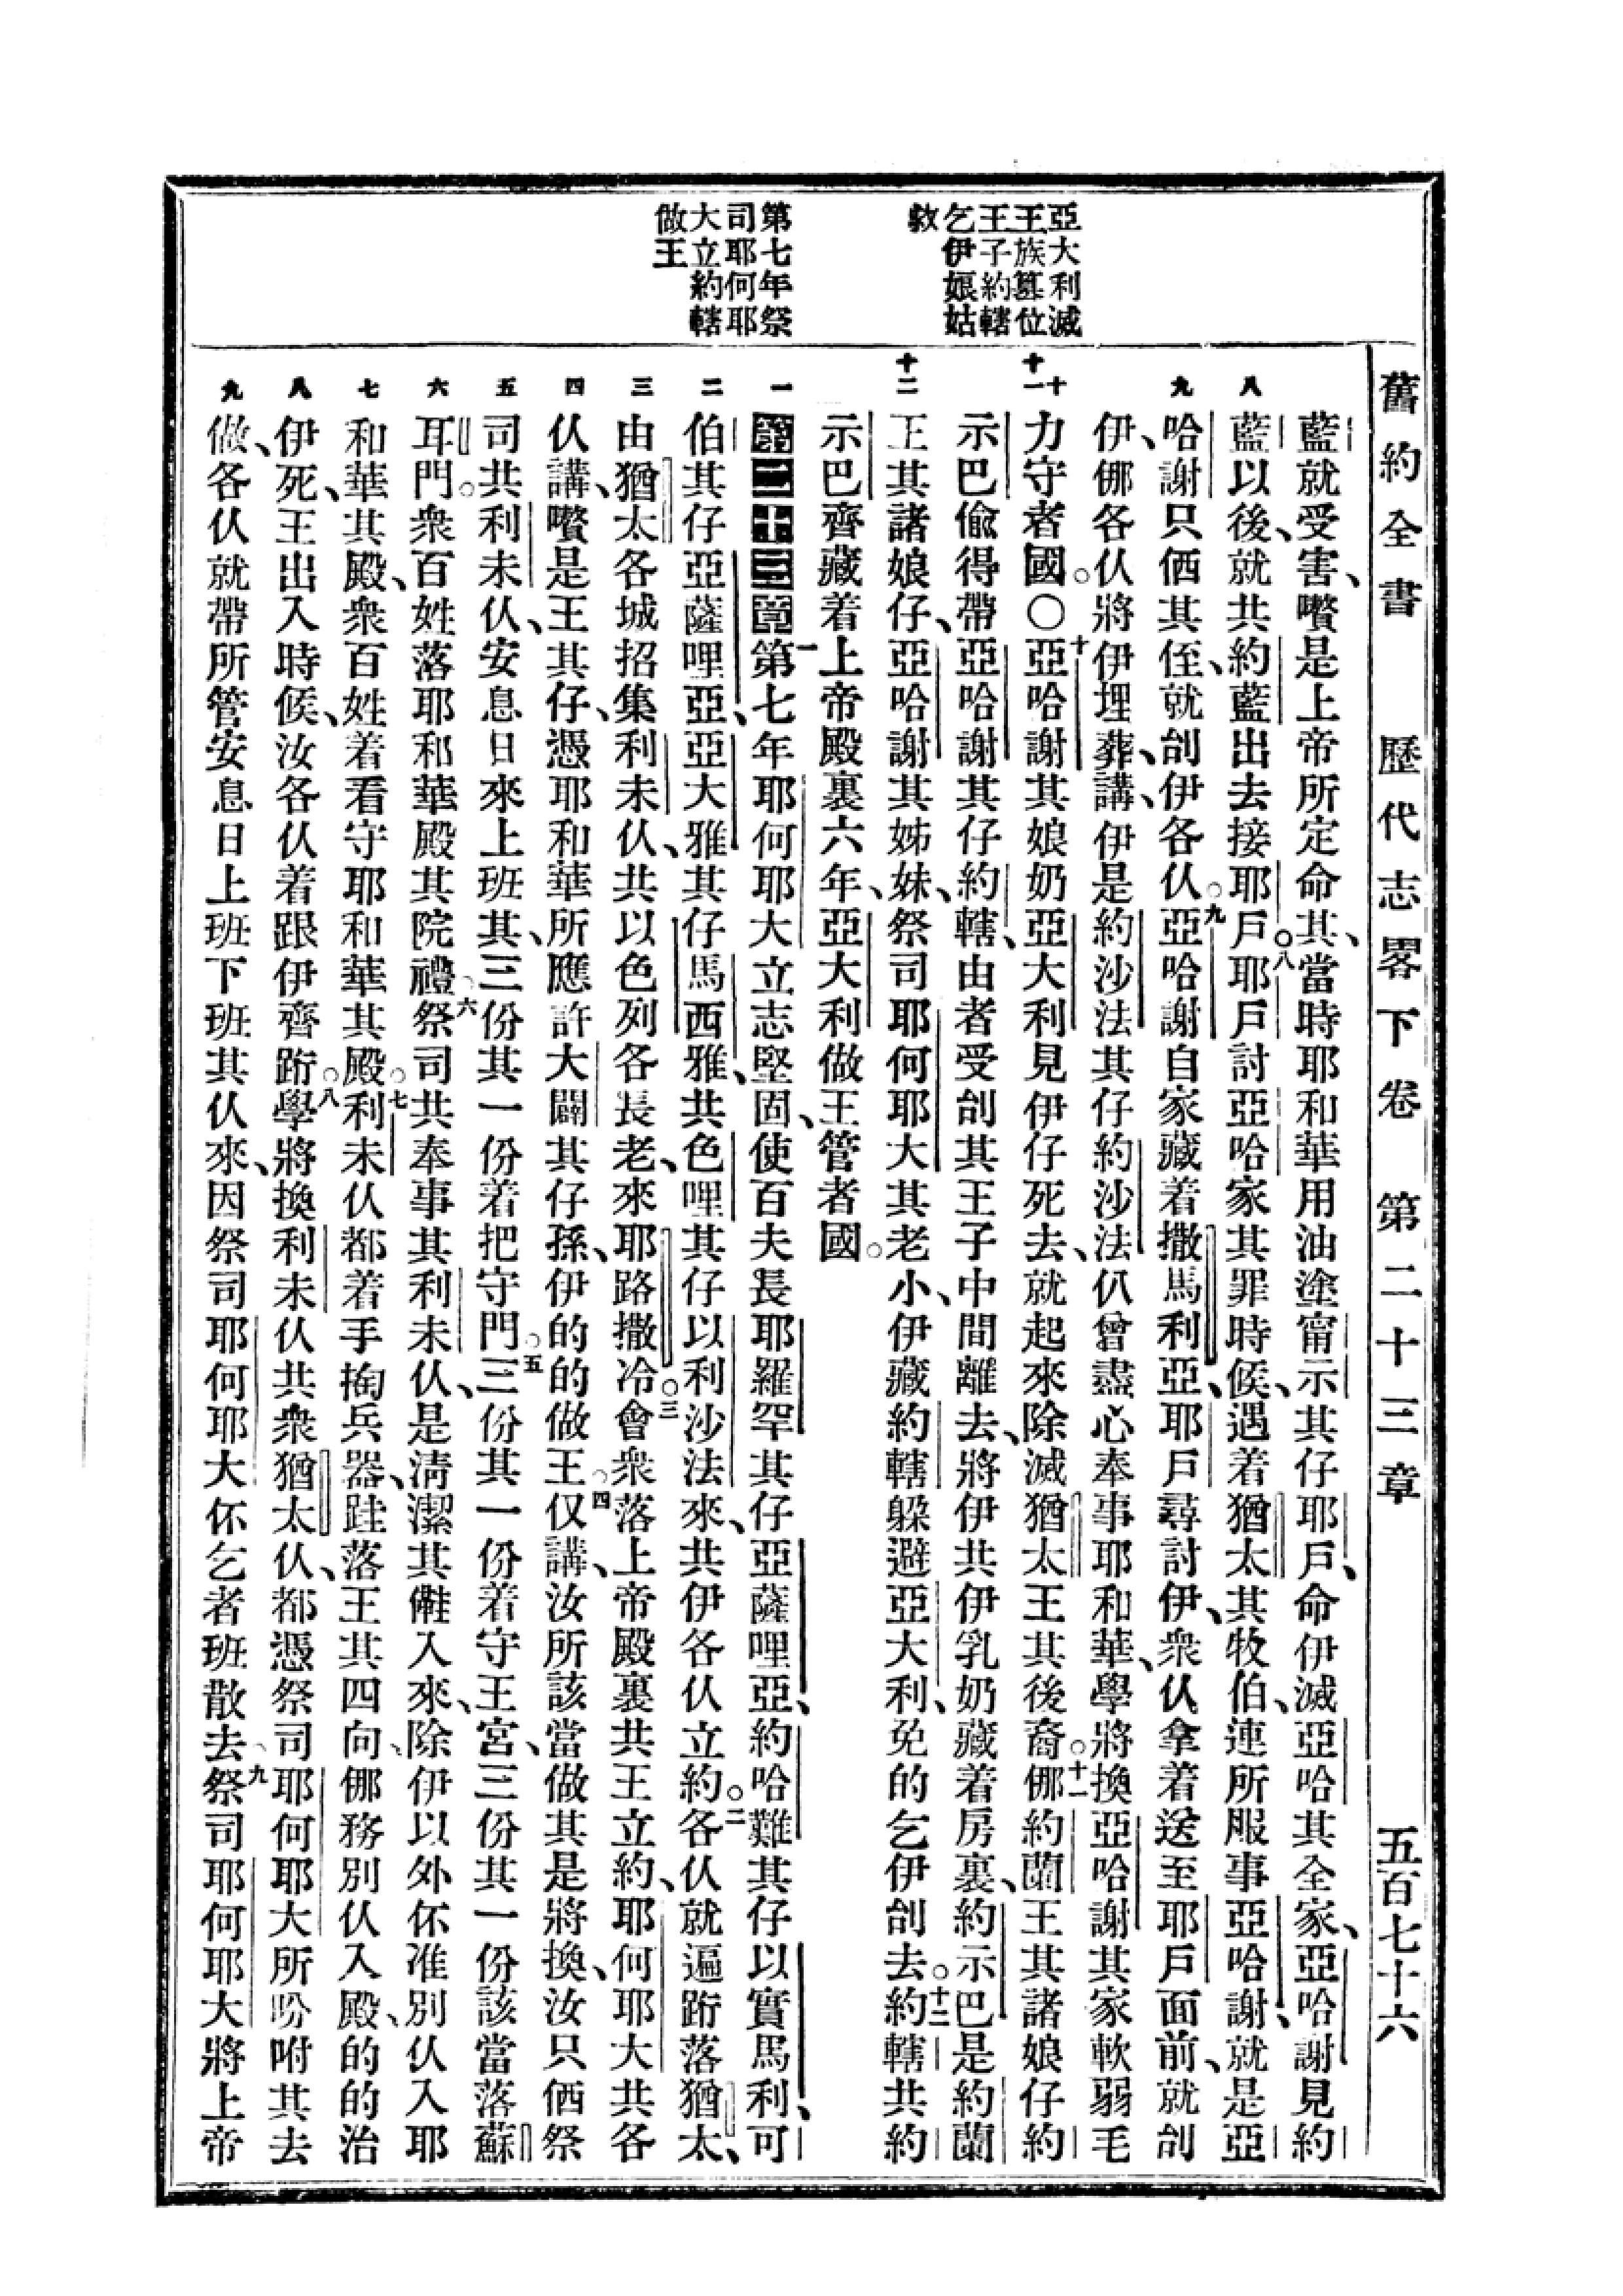 舊約全書 歷代志畧下卷 第二十三章 五百七十六
亞大利滅
王族篡位
王子約轄
乞伊娘姑
救
第七年祭
司耶何耶
大立約轄
做王
藍就受害、嚽是上帝所定命其、當時耶和華用油塗甯示其仔耶戶、命伊滅亞哈其全家、亞哈謝見約
八
藍以後、就共約藍出去接耶戶。八耶戶討亞哈家其罪時候、遇着猶太其牧伯、連所服事亞哈謝、就是亞
九
哈謝只伵其侄、就刣伊各仈。九亞哈謝自家藏着撒馬利亞、耶戶尋討伊、衆仈拿着送至耶戶面前、就刣
伊、㑚各仈將伊埋葬、講、伊是約沙法其仔約沙法仈曾盡心奉事耶和華、學將換亞哈謝其家軟弱毛
十
十一
力守者國。〇十亞哈謝其娘奶亞大利見伊仔死去、就起來除滅猶太王其後裔。十一㑚約蘭王其諸娘仔約
示巴偸得帶亞哈謝其仔約轄、由者受刣其王子中間離去、將伊共伊乳奶藏着房裏、約示巴是約蘭
十二
王其諸娘仔、亞哈謝其姊妹、祭司耶何耶大其老小、伊藏約轄躲避亞大利、免的乞伊刣去。十二約轄共約
示巴齊藏着上帝殿裏六年、亞大利做王管者國。
一
第二十三章一第七年耶何耶大立志堅固、使百夫長耶羅罕其仔亞薩哩亞、約哈難其仔以實馬利、可
二
伯其仔亞薩哩亞、亞大雅其仔馬西雅、共色哩其仔以利沙法來、共伊各仈立約。二各仈就遍跲落猶太、
三
由猶太各城招集利未仈、共以色列各長老、來耶路撒冷。三會衆落上帝殿裏共王立約、耶何耶大共各
四
仈講、嚽是王其仔、憑耶和華所應許大闢其仔孫、伊的的做王。四仅講、汝所該當做其是將換、汝只伵祭
五
司共利未仈、安息日來上班其、三份其一份着把守門。五三份其一份着守王宮、三份其一份該當落蘇
六
耳門。衆百姓落耶和華殿其院禮。六祭司共奉事其利未仈、是淸潔其儺入來、除伊以外伓准別仈入耶
七
和華其殿、衆百姓着看守耶和華其殿。七利未仈都着手掏兵器、跬落王其四向、㑚務別仈入殿、的的治
八
伊死、王出入時候、汝各仈着跟伊齊跲。八學將換利未仈共衆猶太仈、都憑祭司耶何耶大所吩咐其去
九
做、各仈就帶所管安息日上班下班其仈來、因祭司耶何耶大伓乞者班散去。九祭司耶何耶大將上帝